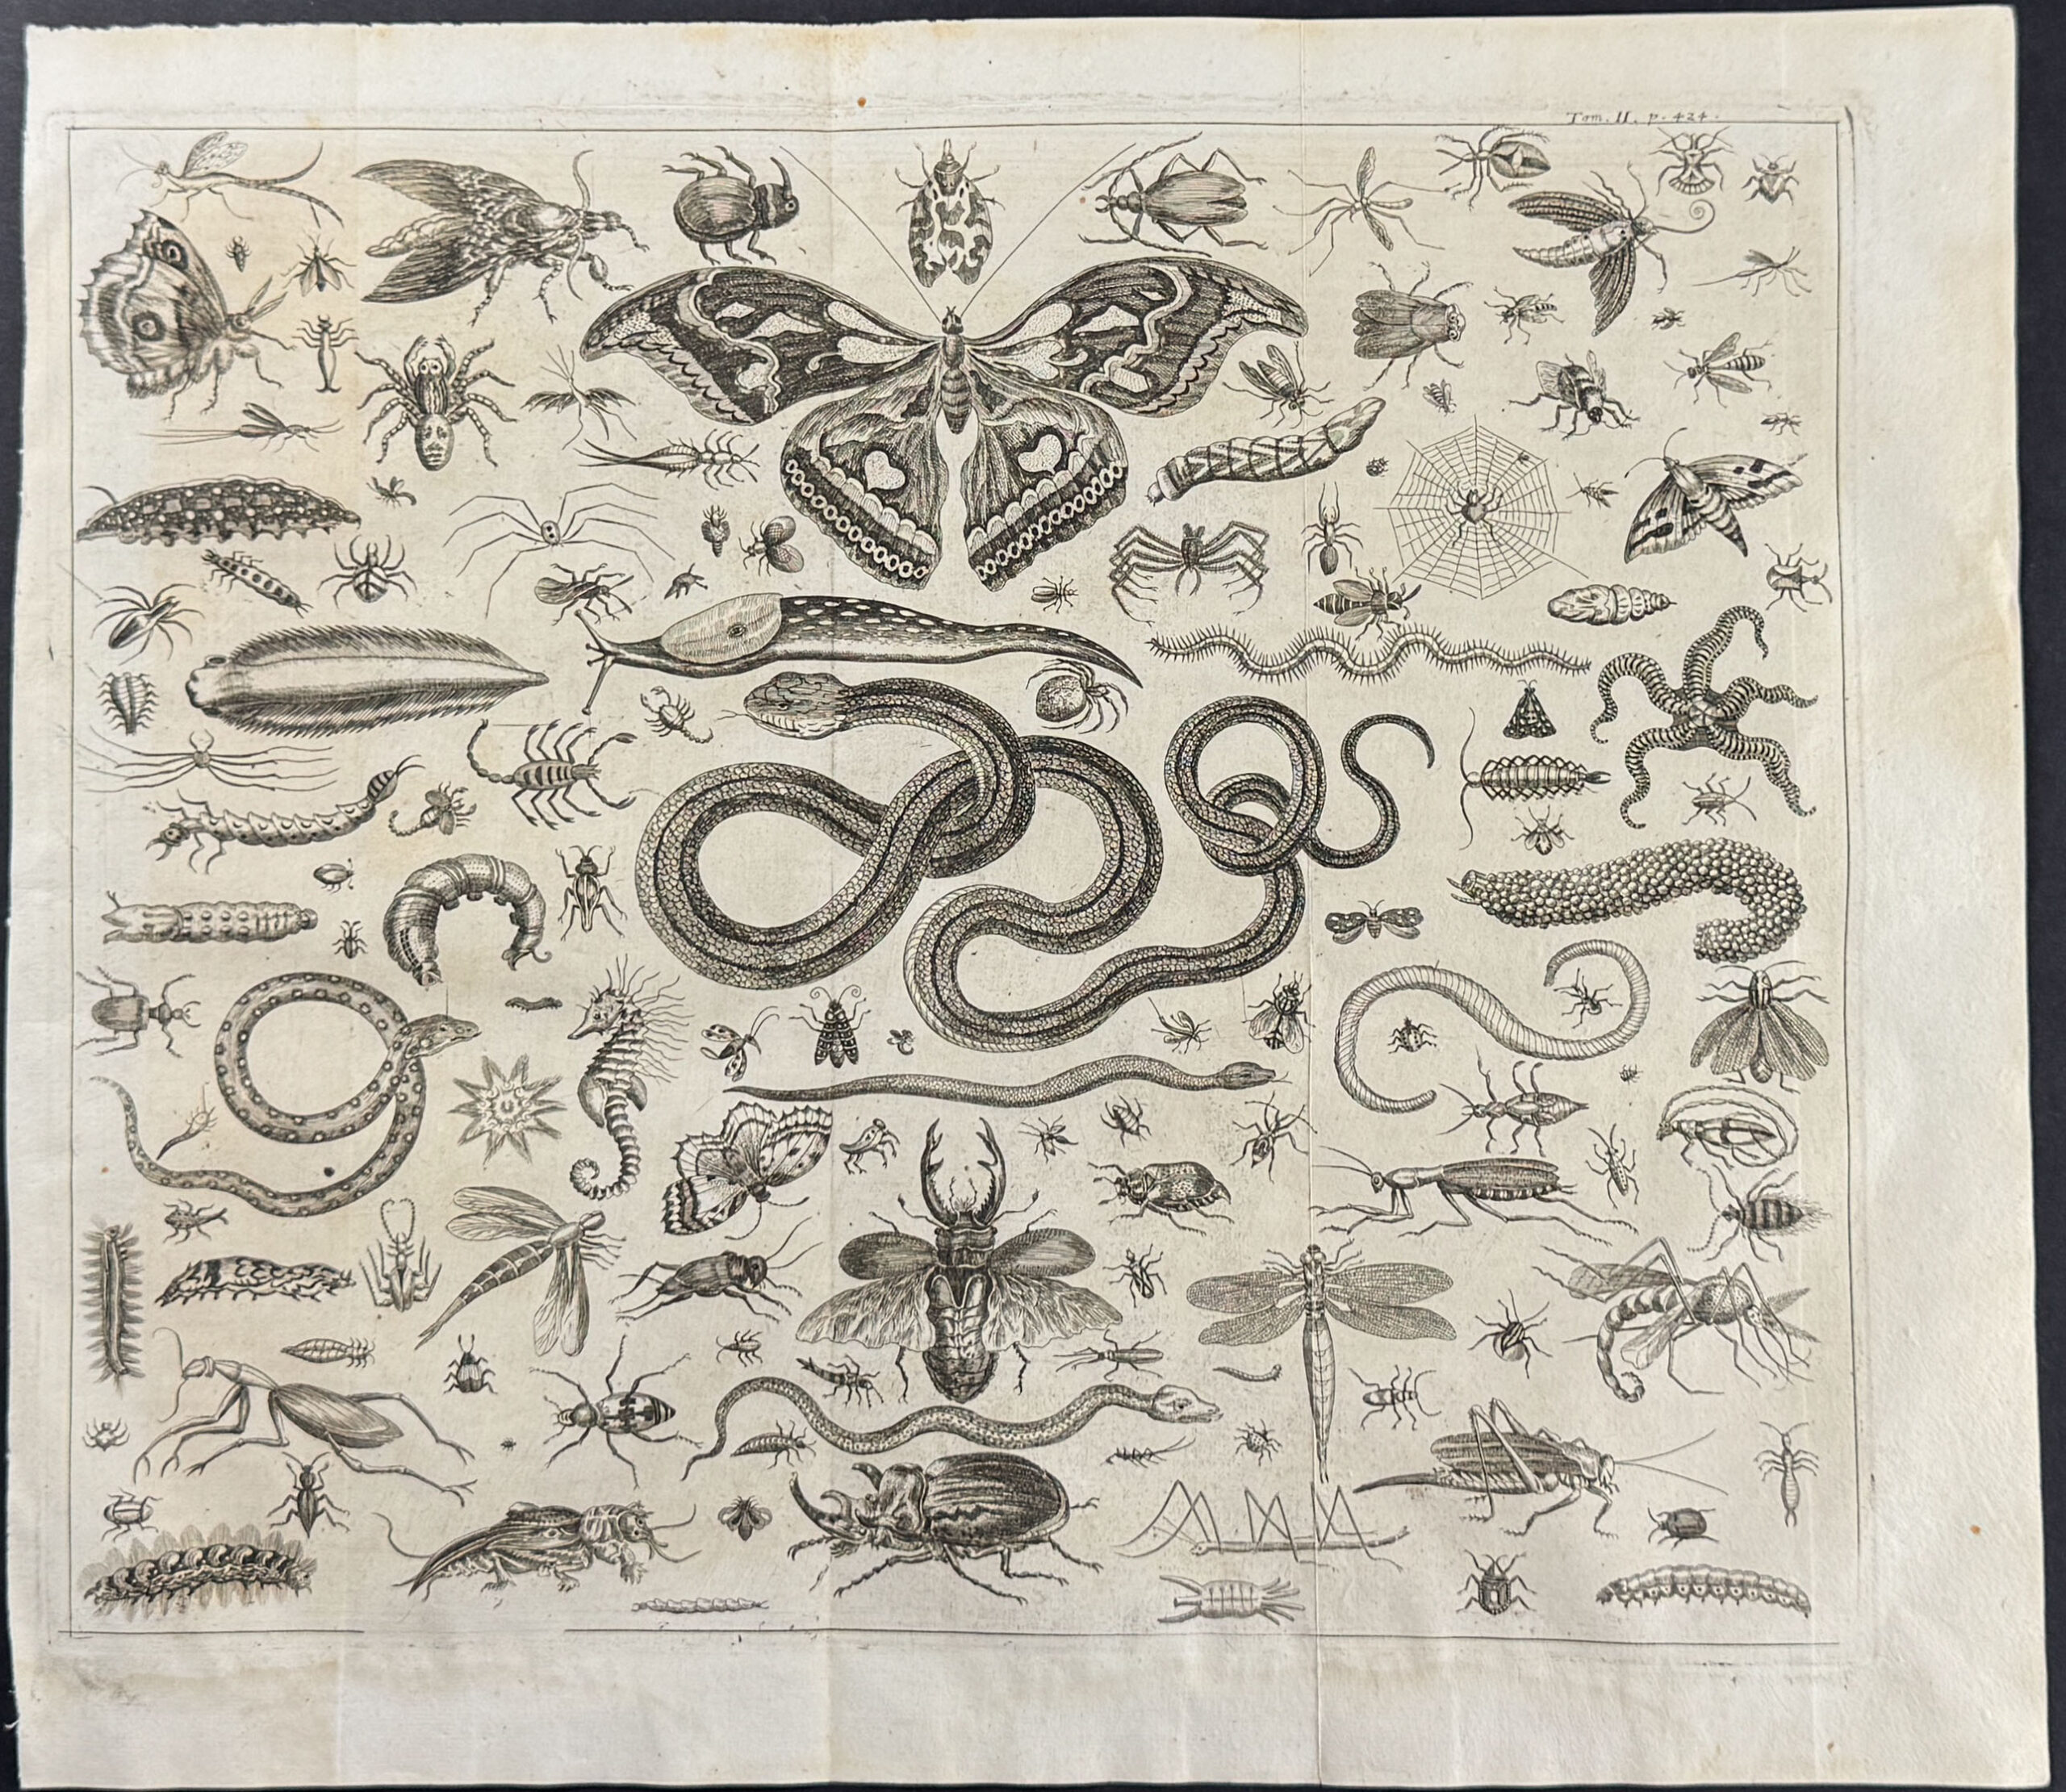 Tom. II. p. 424.